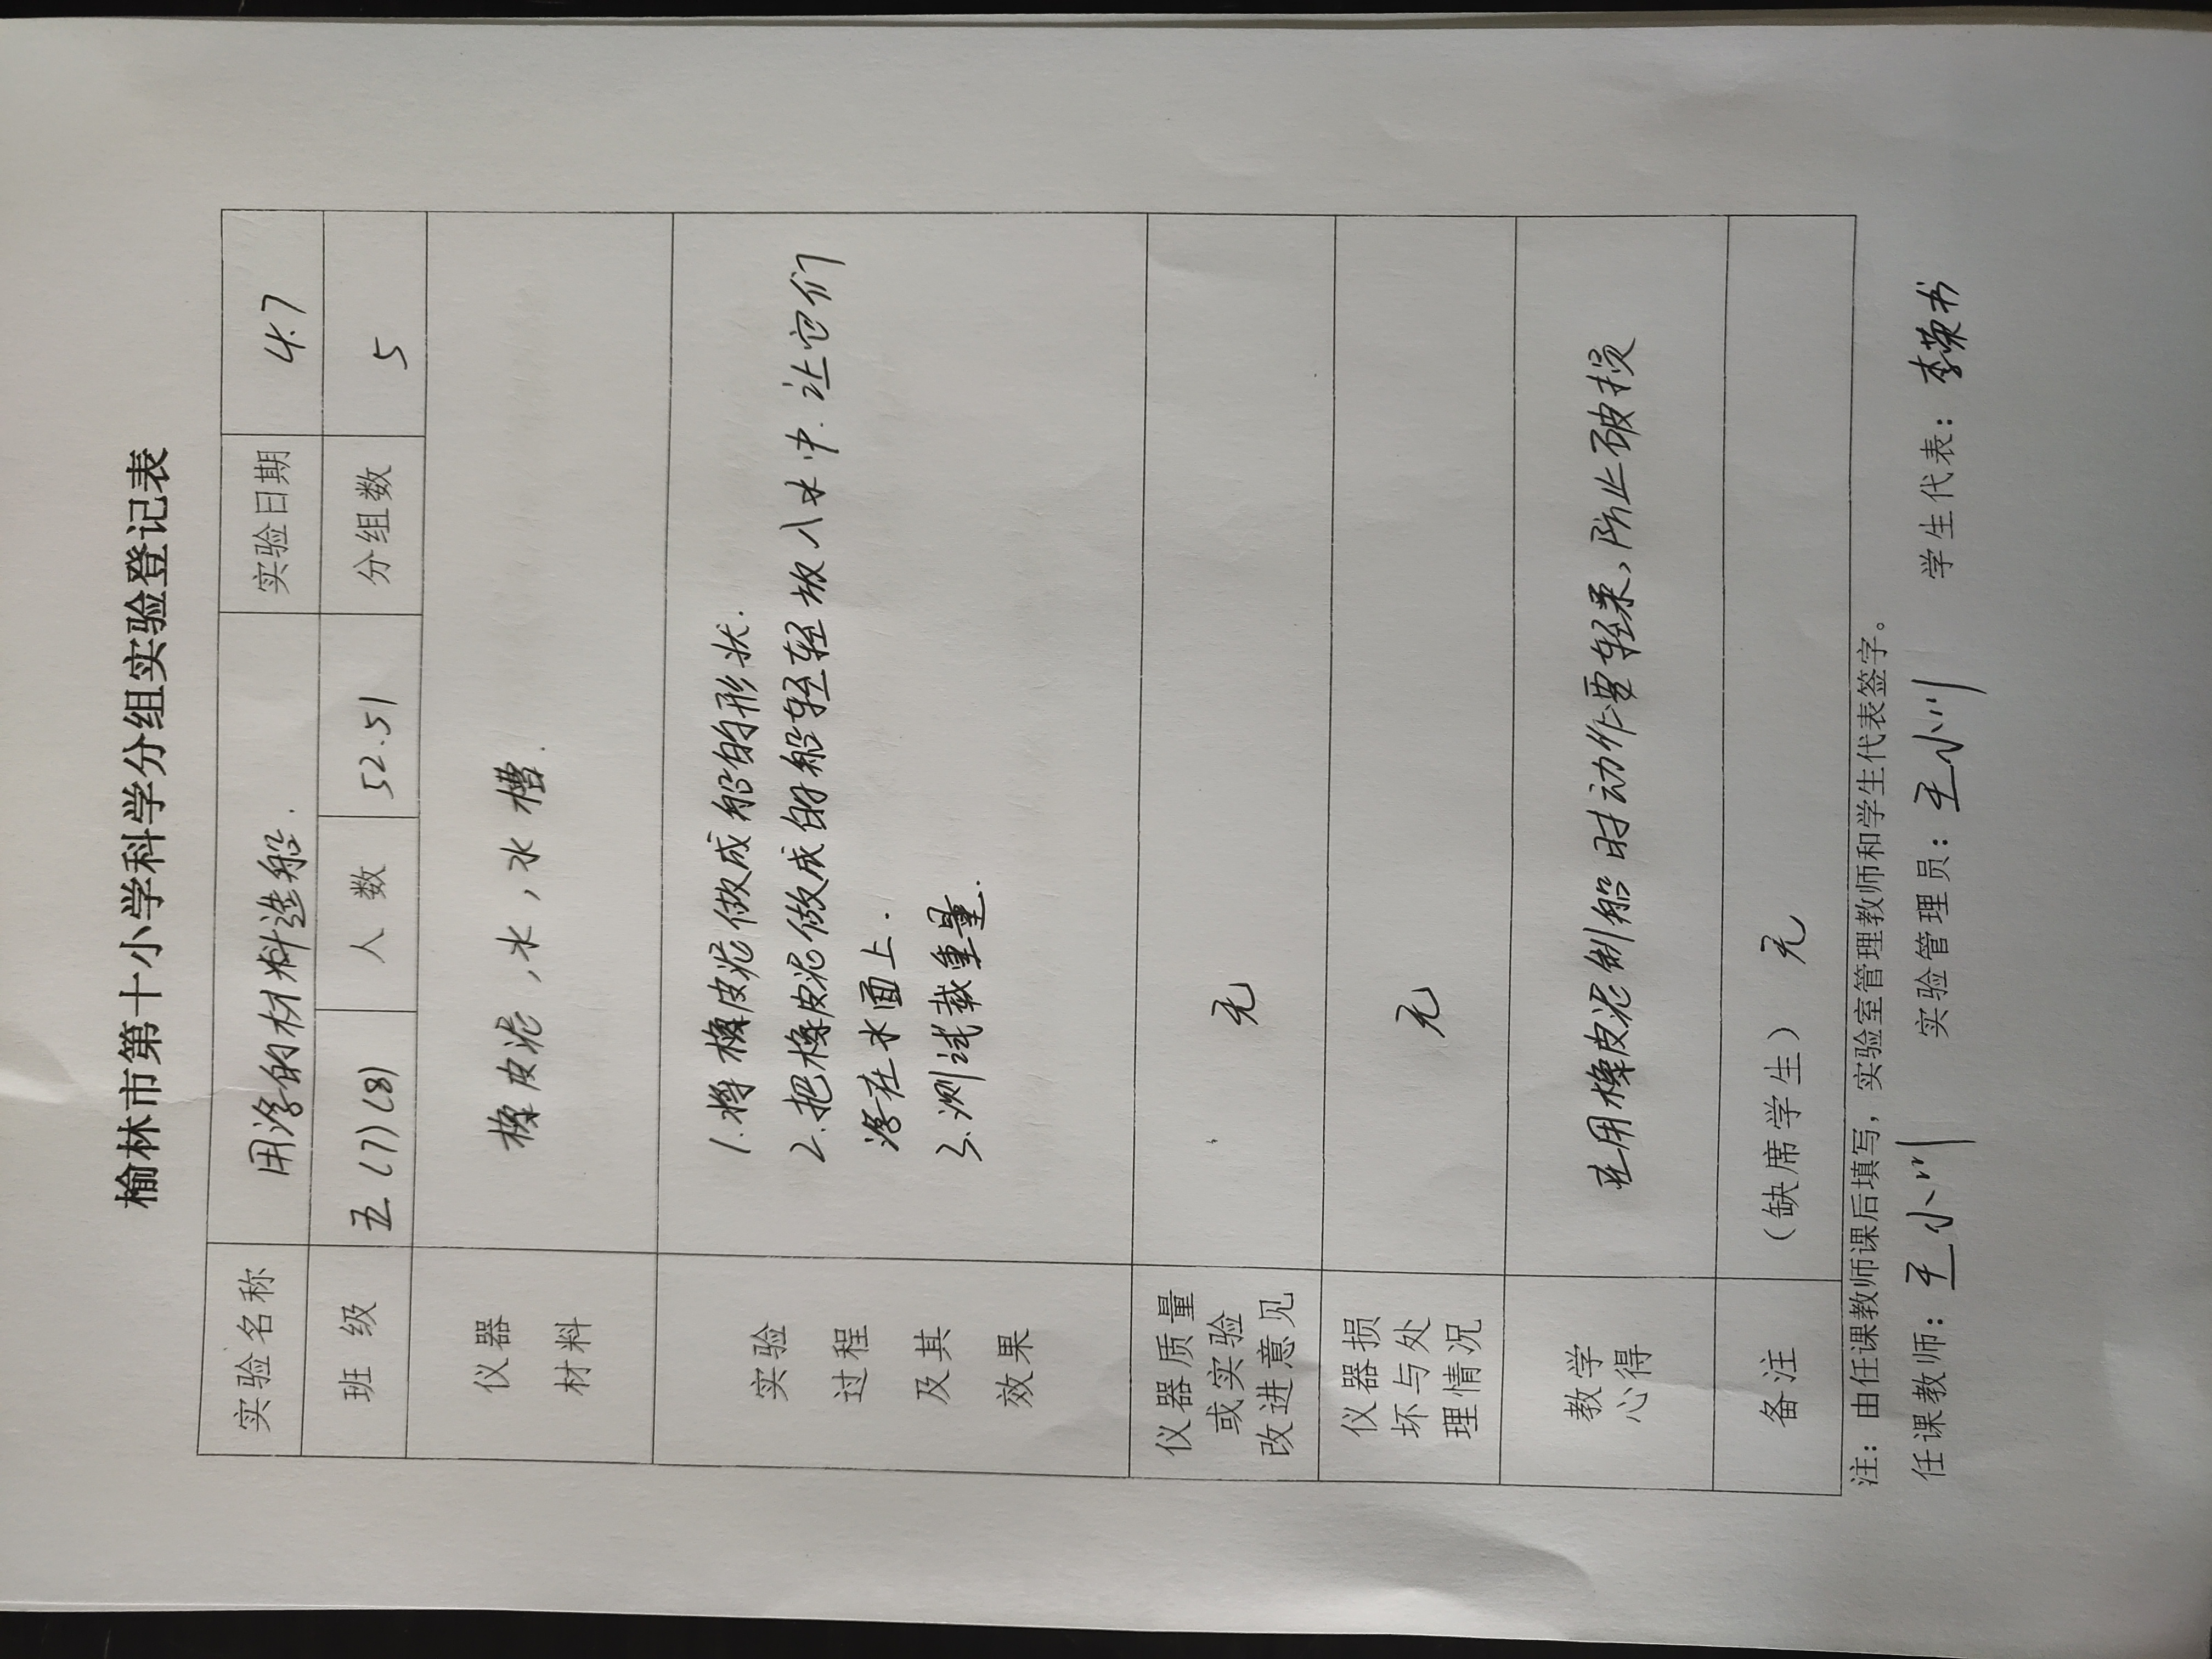 榆林市第十小学科学分组实验登记表
实验名称 用浮的材料造船. 实验日期 4.7
班级 五(7)(8) 人数 52.51 分组数 5
仪器
材料
橡皮泥,水,水槽.
实验
过程
及其
效果
1.将橡皮泥做成船的形状.
2.把橡皮泥做成的船轻轻放入水中.让它们
浮在水面上.
3.测试载重量.
仪器质量
或实验
改进意见
无
仪器损
坏与处
理情况
无
教学
心得
在用橡皮泥制船时动作要轻柔,防止破损
备注 (缺席学生) 无
注:由任课教师课后填写,实验室管理教师和学生代表签字。
任课教师:王小川 实验管理员:王小川 学生代表:李荣书